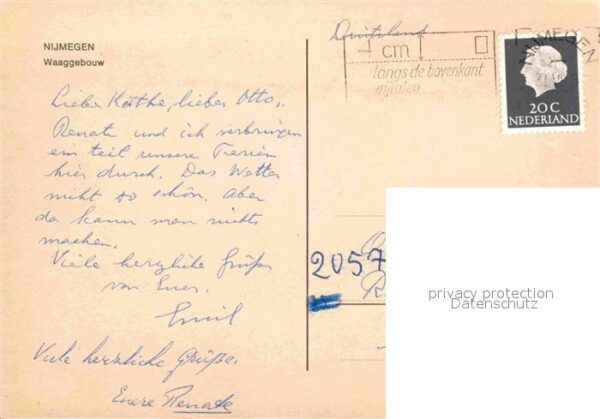 NIJMEGEN
Waaggebouw
Lieber Käthe, lieber Otto,
Renate und ich verbringen
ein teil unsere Ferien
hier durch. Das Wetter
nicht so schön. Aber
da kann man nichts
machen.
Viele herzliche Grüße
von Euer
Emil
Viele herzliche Grüße.
Euere Renate
Duitsland
4 cm
langs de bovenkant
vrijlaten
NIJMEGEN
20 C
NEDERLAND
2057
privacy protection
Datenschutz